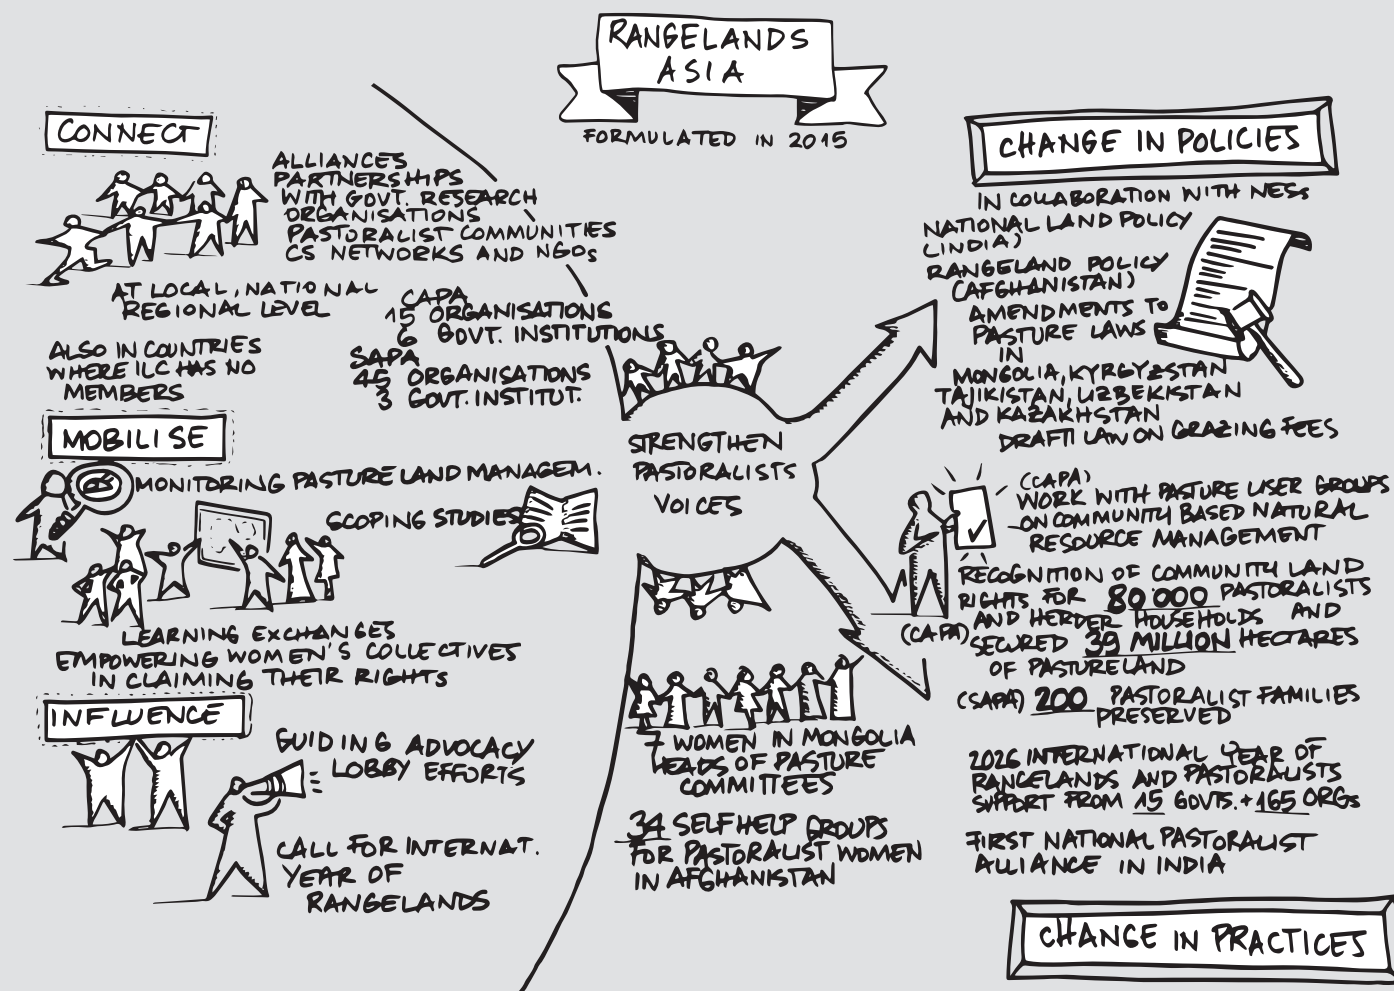 RANGELANDS
ASIA
FORMULATED IN 2015
CONNECT
ALLIANCES
PARTNERSHIPS
WITH GOVT. RESEARCH
ORGANISATIONS
PASTORALIST COMMUNITIES
CS NETWORKS AND NGOs
AT LOCAL, NATIONAL
REGIONAL LEVEL
CAPA
15 ORGANISATIONS
6 GOVT. INSTITUTIONS
SAPA
45 ORGANISATIONS
3 GOVT. INSTITUT.
ALSO IN COUNTRIES
WHERE ILC HAS NO
MEMBERS
MOBILISE
MONITORING PASTURE LAND MANAGEM.
SCOPING STUDIES
LEARNING EXCHANGES
EMPOWERING WOMEN'S COLLECTIVES
IN CLAIMING THEIR RIGHTS
INFLUENCE
GUIDING ADVOCACY
LOBBY EFFORTS
CALL FOR INTERNAT.
YEAR OF
RANGELANDS
STRENGTHEN
PASTORALISTS
VOICES
7 WOMEN IN MONGOLIA
HEADS OF PASTURE
COMMITTEES
34 SELF HELP GROUPS
FOR PASTORALIST WOMEN
IN AFGHANISTAN
CHANGE IN POLICIES
IN COLLABORATION WITH NESs
NATIONAL LAND POLICY
(INDIA)
RANGELAND POLICY
(AFGHANISTAN)
AMENDMENTS TO
PASTURE LAWS
IN
MONGOLIA, KYRGYZSTAN
TAJIKISTAN, UZBEKISTAN
AND KAZAKHSTAN
DRAFT LAW ON GRAZING FEES
(CAPA)
WORK WITH PASTURE USER GROUPS
ON COMMUNITY BASED NATURAL
RESOURCE MANAGEMENT
RECOGNITION OF COMMUNITY LAND
RIGHTS FOR 80'000 PASTORALISTS
AND HERDER HOUSEHOLDS AND
(CAPA) SECURED 39 MILLION HECTARES
OF PASTURELAND
(SAPA) 200 PASTORALIST FAMILIES
PRESERVED
2026 INTERNATIONAL YEAR OF
RANGELANDS AND PASTORALISTS
SUPPORT FROM 15 GOVTS. + 165 ORGs
FIRST NATIONAL PASTORALIST
ALLIANCE IN INDIA
CHANGE IN PRACTICES